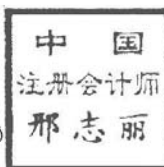 中国
注册会计师
邢志丽